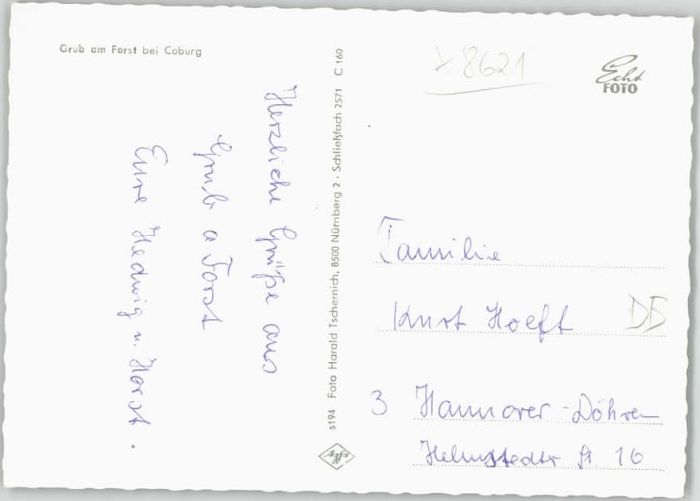 Grub am Forst bei Coburg
Herzliche Grüße aus
Grub a Forst
Eure Hedwig u. Horst.
s194 Foto Harald Tschernich, 8500 Nürnberg 2 · Schließfach 2571 C 160
8621
Echt
FOTO
Familie
Kurt Hoeft
DB
3 Hannover-Döhren
Helmstedter St. 16
Agfa